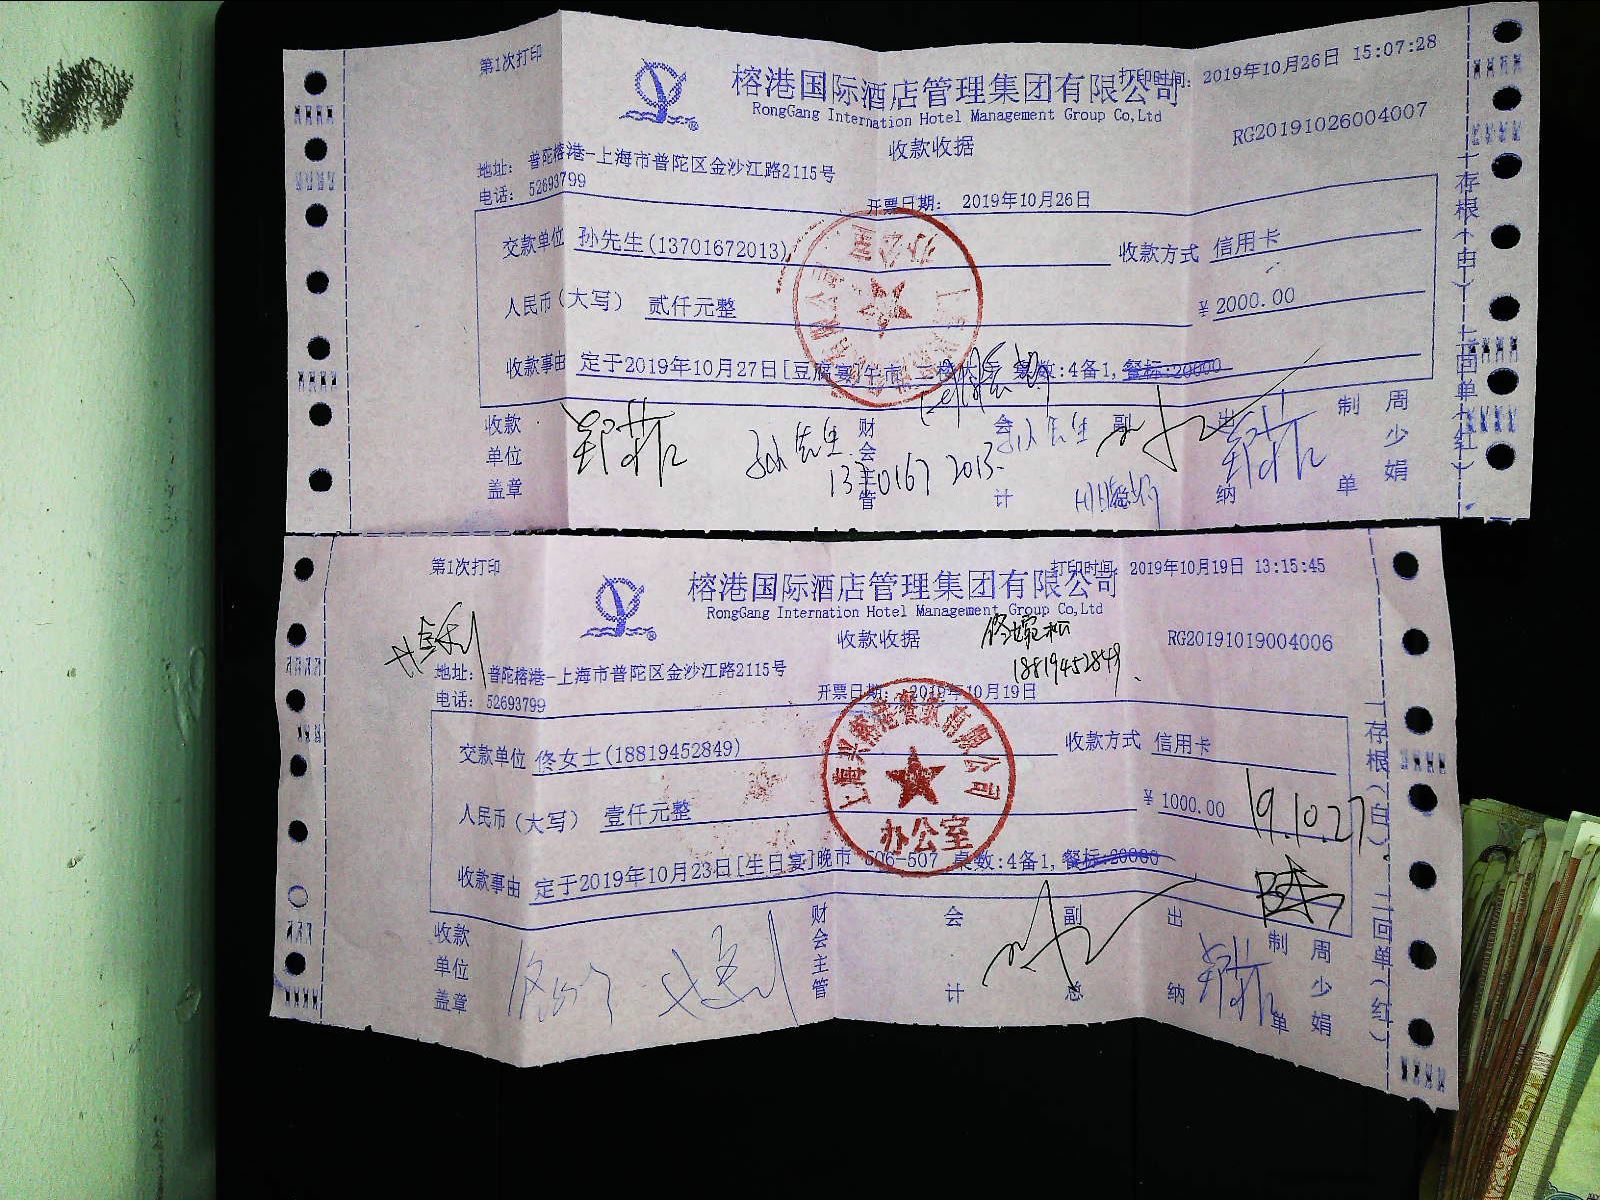 第1次打印
打印时间: 2019年10月26日 15:07:28
榕港国际酒店管理集团有限公司
RongGang Internation Hotel Management Group Co,Ltd
收款收据
RG20191026004007
地址: 普陀榕港-上海市普陀区金沙江路2115号
电话: 52693799
开票日期: 2019年10月26日
交款单位 孙先生(13701672013) 收款方式 信用卡
人民币(大写) 贰仟元整 ¥ 2000.00
收款事由 定于2019年10月27日[豆腐宴]午市 桌数:4备1,餐标:20000
收款单位盖章 财会主管 会计 副 出纳 制单 周少娟
孙先生
13701672013
孙先生
一存根(白) 二回单(红)
办公室
第1次打印
打印时间: 2019年10月19日 13:15:45
榕港国际酒店管理集团有限公司
RongGang Internation Hotel Management Group Co,Ltd
收款收据
RG20191019004006
18819452849
地址: 普陀榕港-上海市普陀区金沙江路2115号
电话: 52693799
开票日期: 2019年10月19日
交款单位 佟女士(18819452849) 收款方式 信用卡
人民币(大写) 壹仟元整 ¥ 1000.00
19.10.27
收款事由 定于2019年10月23日[生日宴]晚市 506-507 桌数:4备1,餐标:20000
收款单位盖章 财会主管 会计 副总 出纳 制单 周少娟
一存根(白) 二回单(红)
办公室